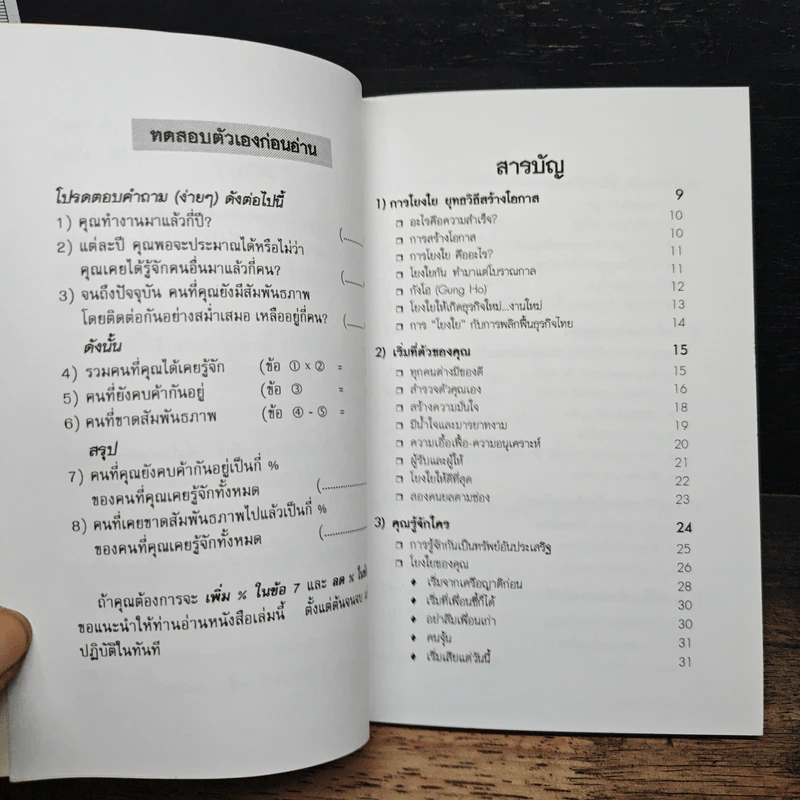 ทดสอบตัวเองก่อนอ่าน
โปรดตอบคำถาม (ง่ายๆ) ดังต่อไปนี้
1) คุณทำงานมาแล้วกี่ปี? (.....
2) แต่ละปี คุณพอจะประมาณได้หรือไม่ว่า
คุณเคยได้รู้จักคนอื่นมาแล้วกี่คน? (.....
3) จนถึงปัจจุบัน คนที่คุณยังมีสัมพันธภาพ
โดยติดต่อกันอย่างสม่ำเสมอ เหลืออยู่กี่คน? (.....
ดังนั้น
4) รวมคนที่คุณได้เคยรู้จัก (ข้อ ① x ② =
5) คนที่ยังคบค้ากันอยู่ (ข้อ ③ =
6) คนที่ขาดสัมพันธภาพ (ข้อ ④ - ⑤ =
สรุป
7) คนที่คุณยังคบค้ากันอยู่เป็นกี่ %
ของคนที่คุณเคยรู้จักทั้งหมด (............
8) คนที่เคยขาดสัมพันธภาพไปแล้วเป็นกี่ %
ของคนที่คุณเคยรู้จักทั้งหมด (............
ถ้าคุณต้องการจะ เพิ่ม % ในข้อ 7 และ ลด %
ขอแนะนำให้ท่านอ่านหนังสือเล่มนี้ ตั้งแต่ต้นจนจบ
ปฏิบัติในทันที
สารบัญ
1) การโยงใย ยุทธวิถีสร้างโอกาส 9
❒ อะไรคือความสำเร็จ? 10
❒ การสร้างโอกาส 10
❒ การโยงใย คืออะไร? 11
❒ โยงใยกัน ทำมาแต่โบราณกาล 11
❒ กังโฮ (Gung Ho) 12
❒ โยงใยให้เกิดธุรกิจใหม่...งานใหม่ 13
❒ การ "โยงใย" กับการพลิกฟื้นธุรกิจไทย 14
2) เริ่มที่ตัวของคุณ 15
❒ ทุกคนต่างมีของดี 15
❒ สำรวจตัวคุณเอง 16
❒ สร้างความมั่นใจ 18
❒ มีน้ำใจและมารยาทงาม 19
❒ ความเอื้อเฟื้อ-ความอนุเคราะห์ 20
❒ ผู้รับและผู้ให้ 21
❒ โยงใยให้ดีที่สุด 22
❒ สองคนยลตามช่อง 23
3) คุณรู้จักใคร 24
❒ การรู้จักกันเป็นทรัพย์อันประเสริฐ 25
❒ โยงใยของคุณ 26
♦ เริ่มจากเครือญาติก่อน 28
♦ เริ่มที่เพื่อนซี้ก็ได้ 30
♦ อย่าลืมเพื่อนเก่า 30
♦ คนจุ้น 31
♦ เริ่มเสียแต่วันนี้ 31